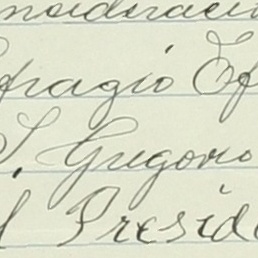 nsideraci
fragio Ef
S. Gregorio
l Preside